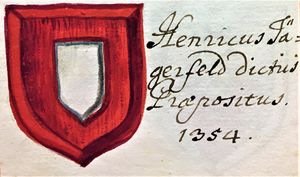 Henricus Jä=
gerfeld dictus
Præpositus.
1354.